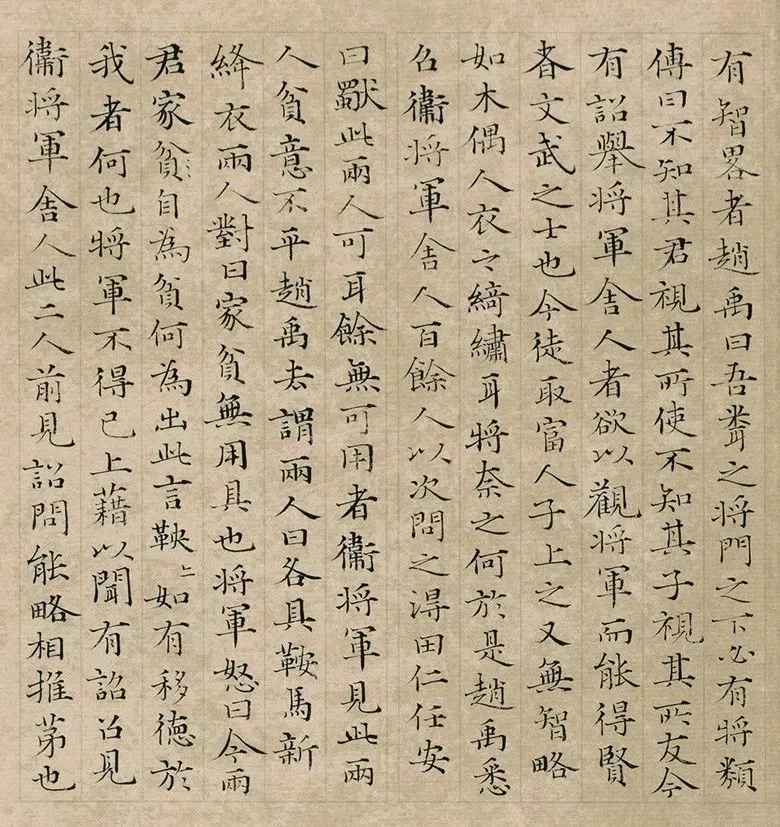 有智畧者趙禹曰吾䎽之將門之下必有將類
傳曰不知其君視其所使不知其子視其所友今
有詔舉將軍舍人者欲以觀將軍而能得賢
者文武之士也今徒取富人子上之又無智略
如木偶人衣之綺繡耳將奈之何於是趙禹悉
召衞將軍舍人百餘人以次問之得田仁任安
曰獨此兩人可耳餘無可用者衞將軍見此兩
人貧意不平趙禹去謂兩人曰各具鞍馬新
絳衣兩人對曰家貧無用具也將軍怒曰今兩
君家貧自為貧何為出此言鞅〻如有移德於
我者何也將軍不得已上藉以聞有詔召見
衞將軍舍人此二人前見詔問能略相推第也